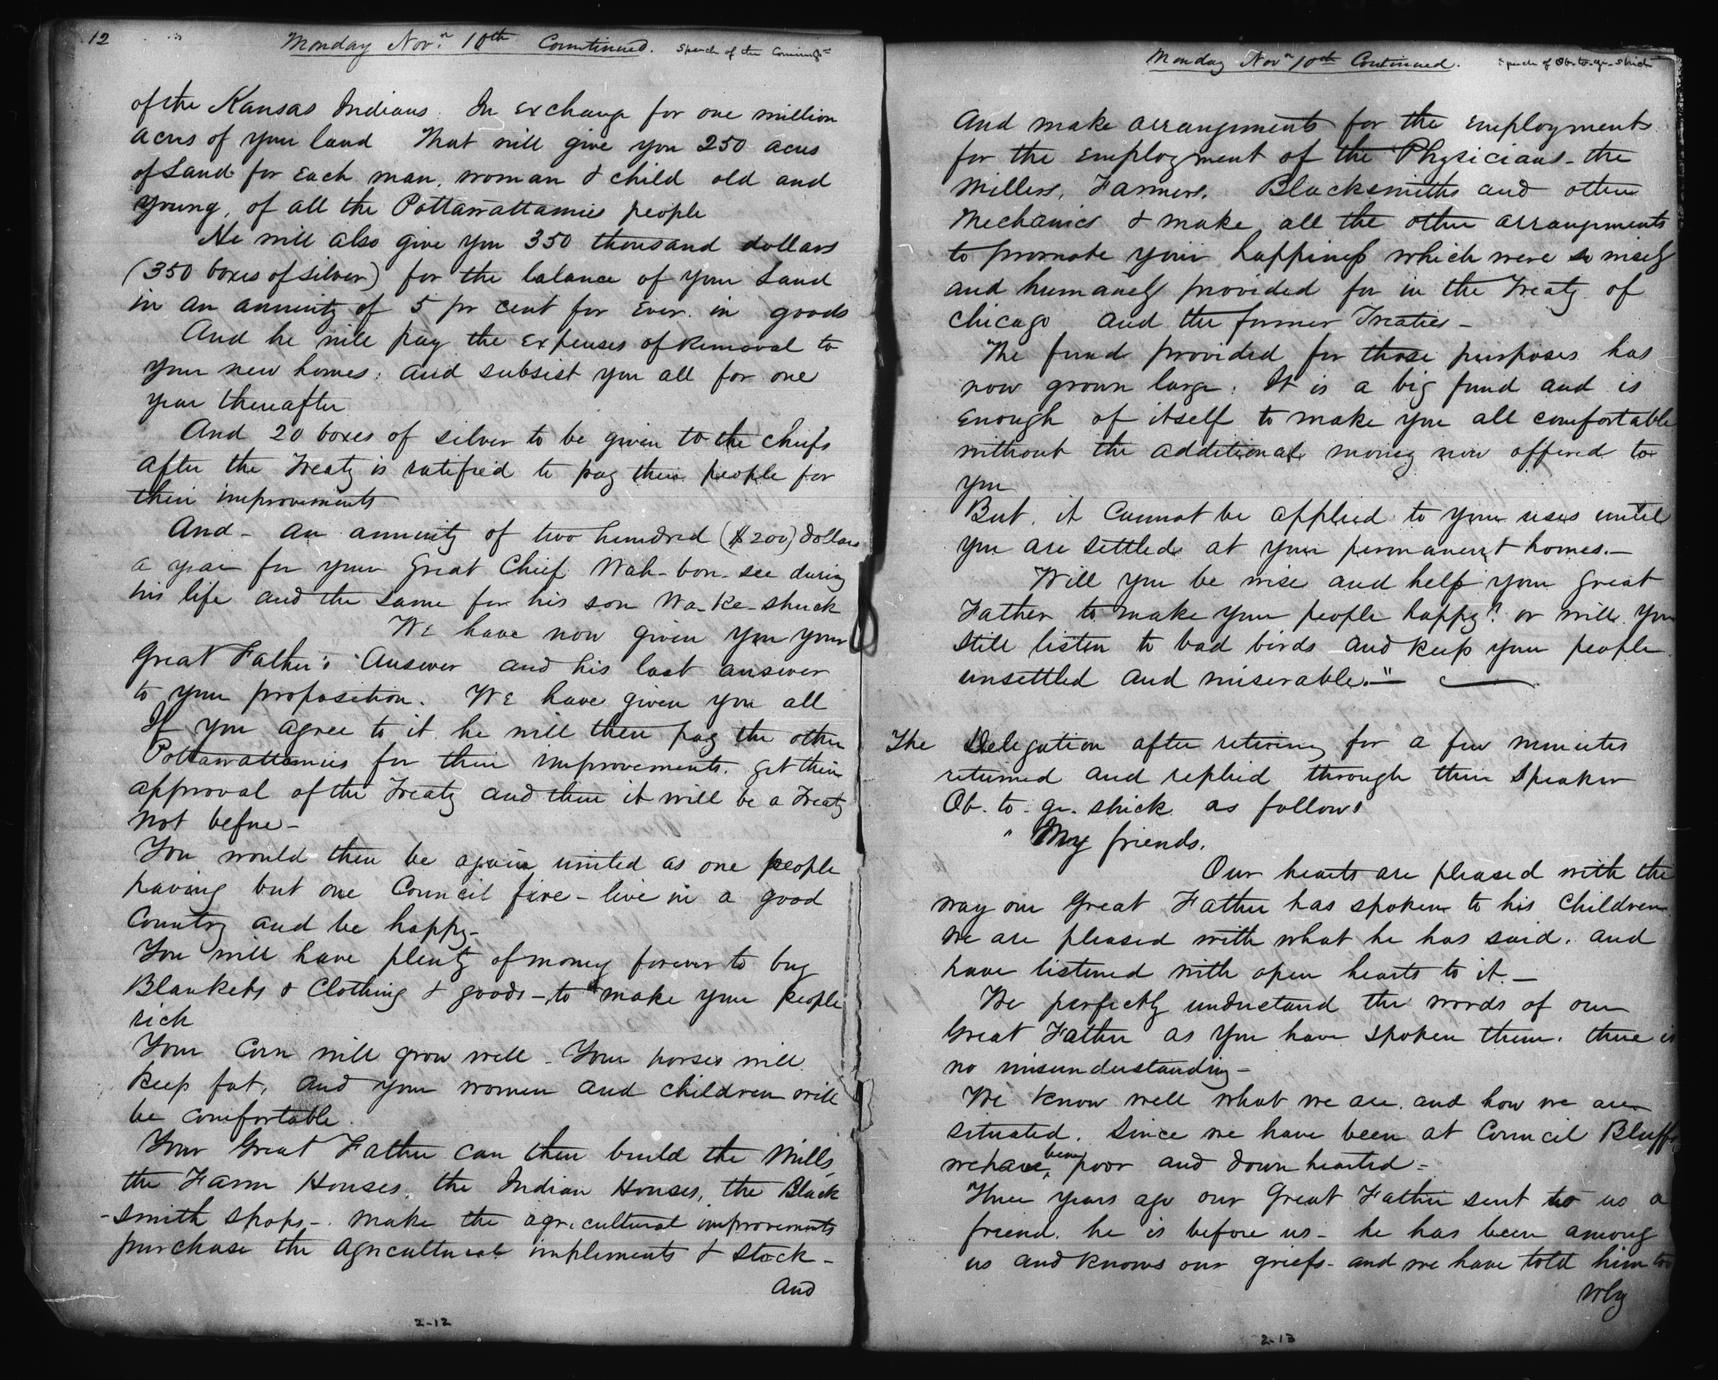 12
Monday Novr. 10th Countinued. Speech of the Commiss
of the Kansas Indians. In Exchange for one million
acres of your land That will give you 250 acres
of Land for Each man, woman & child old and
young, of all the Pottawattamies people
He will also give you 350 thousand dollars
(350 boxes of silver) for the balance of your Land
in an annuity of 5 pr cent for Ever. in goods
And he will pay the Expenses of Removal to
your new homes: and subsist you all for one
year thereafter
And 20 boxes of silver to be given to the chiefs
after the Treaty is ratified to pay their people for
their improvements
And - an annuity of two hundred ($200) dollars
a year for your Great Chief Wah-bon-see during
his life and the same for his son Wa-Ke-shuck
We have now given you your
Great Father's Answer and his last answer
to your proposition. We have given you all
If you agree to it he will then pay the other
Pottawattamies for their improvements. get their
approval of the Treaty and then it will be a Treaty
not before -
You would then be again united as one people
having but one Council fire - live in a good
Country and be happy -
You will have plenty of money forever to buy
Blankets & Clothing & goods - to make your people
rich
Your Corn will grow well - Your horses will
keep fat, and your women and children will
be comfortable.
Your Great Father can then build the Mills,
the Farm Houses, the Indian Houses, the Black
-smith shops, - make the agricultural improvements
purchase the agricultural impliments & stock -
And
2-12
Monday Novr 10th Continued. Speech of Ob-to-ge-shick
And make arrangements for the Employments
for the Employment of the Physicians - the
Millers, Farmers, Blacksmiths and other
Mechanics & make all the other arrangements
to promote your happiness which were so wisely
and humanely provided for in the Treaty of
Chicago and the former Treaties -
The fund provided for those purposes has
now grown large: It is a big fund and is
Enough of itself to make you all comfortable
without the additional money now offered to
you
But, it Cannot be applied to your uses until
you are settled at your permanent homes. -
Will you be wise and help your Great
Father to make your people happy? or will you
still listen to bad birds and keep your people
unsettled and miserable. - "
The Delegation after retiring for a few minutes
returned and replied through their Speaker
Ob-to-ge-shick as follows
" My friends.
Our hearts are pleased with the
way our Great Father has spoken to his Children
We are pleased with what he has said. and
have listened with open hearts to it. -
We perfectly understand the words of our
Great Father as you have spoken them. there is
no misunderstanding -
We know well what we are, and how we are
situated. Since we have been at Council Bluffs
we have been poor and down hearted -
Three years ago our Great Father sent to us a
friend, he is before us - he has been among
us and knows our griefs - and we have told him too
Why
2-13